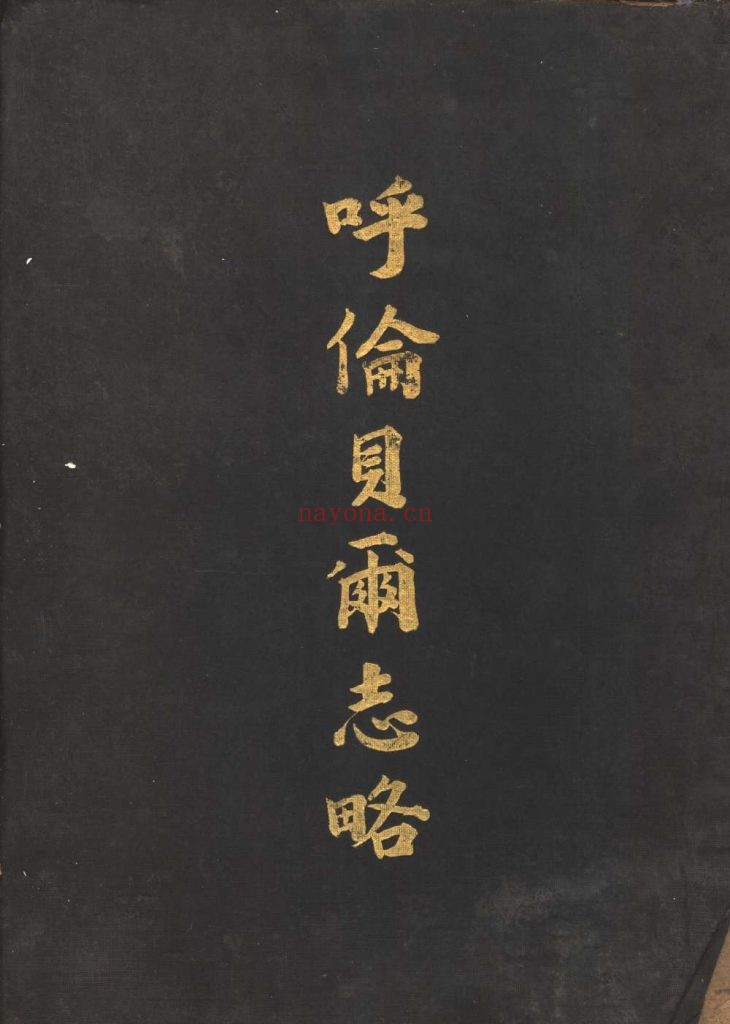 呼倫貝爾志略
nayona.cn